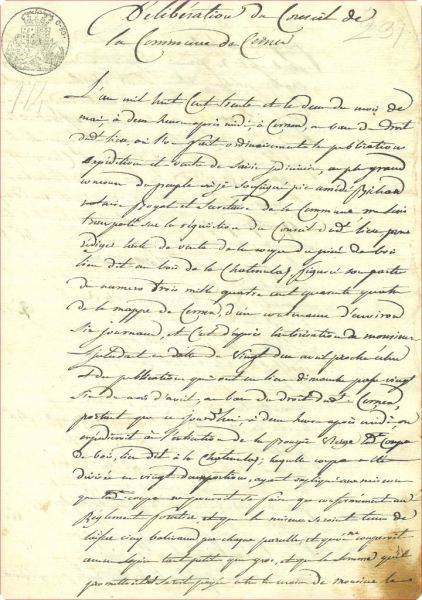 Délibération du Conseil de
la Commune de Cernex
231
114
L'an mil huit Cent trente et le deux du mois de
mai, à deux heures après midi, à Cernex, au banc de droit
dudt lieu, où l'on fait ordinairement les publications
expéditions et vente de Saisie judiciaire, au plus grand
concours du peuple
notaire Royal et Secrétaire de la Commune me suis
transporté sur la réquisition du Conseil dudt lieu pour
rédiger acte de vente de la coupe du bois
lieu dit au bois de la Chatenelaz, figuré
du numero trois mille quatre cent quarante quatre
de la mappe de Cernex, d'une contenance d'environ
Six journaux, et c'est d'après l'autorisation de monsieur
l'intendant en date du Vingt deux avril proche échu
et des publications qui ont eu lieu dimanche passé vingt
du mois d'avril, au banc du Droit dudt Cernex,
portant que ce jourd'hui, à deux heures après midi, on
expédieroit à l'extinction de la bougie Vierge ladt Coupe
de bois, lieu dit à la Chatenelaz, laquelle coupe a été
divisée en vingt portions, ayant expliqué aux miseurs
que ladt coupe ne pouvoit se faire que conformement au
Règlement forestier, et que les miseurs seroient tenus de
laisser cinq baliveaux par chaque parcelle, et qu'on couperoit
aussi le sapin tant petit que gros, et que la somme qu'il
promettoit seroit payée entre les mains de monsieur le